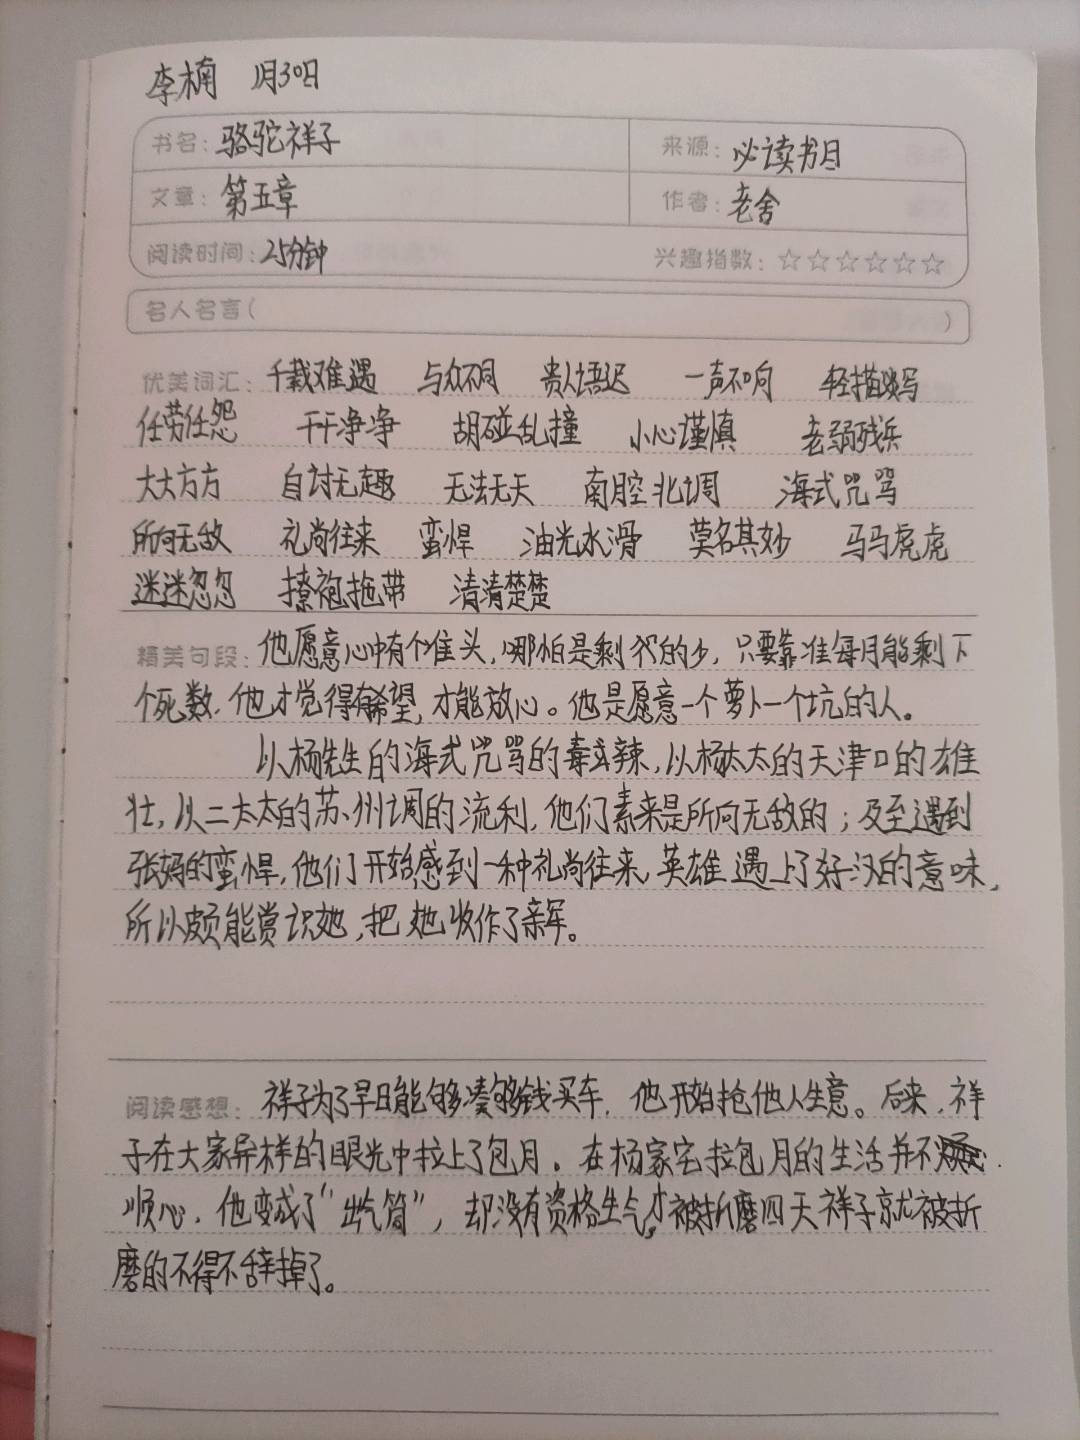 李楠 1月30日
书名：骆驼祥子 来源：必读书目
文章：第五章 作者：老舍
阅读时间：25分钟 兴趣指数：☆☆☆☆☆☆
名人名言（ ）
优美词汇：千载难遇 与众不同 贵人语迟 一声不响 轻描淡写
任劳任怨 干干净净 胡碰乱撞 小心谨慎 老弱残兵
大大方方 自讨无趣 无法无天 南腔北调 海式咒骂
所向无敌 礼尚往来 蛮悍 油光水滑 莫名其妙 马马虎虎
迷迷忽忽 撩袍拖带 清清楚楚
精美句段：他愿意心中有个准头，哪怕是剩的少，只要靠准每月能剩下
个死数，他才觉得有希望，才能放心。他是愿意一个萝卜一个坑的人。
以杨先生的海式咒骂的毒辣，以杨太太的天津口的雄
壮，以二太太的苏州调的流利，他们素来是所向无敌的；及至遇到
张妈的蛮悍，他们开始感到一种礼尚往来，英雄遇上了好汉的意味，
所以颇能赏识她，把她收作了亲军。
阅读感想：祥子为了早日能够凑够钱买车，他开始抢他人生意。后来，祥
子在大家异样的眼光中拉上了包月。在杨家宅拉包月的生活并不
顺心，他变成了“出气筒”，却没有资格生气，才被折磨四天祥子就被折
磨的不得不辞掉了。